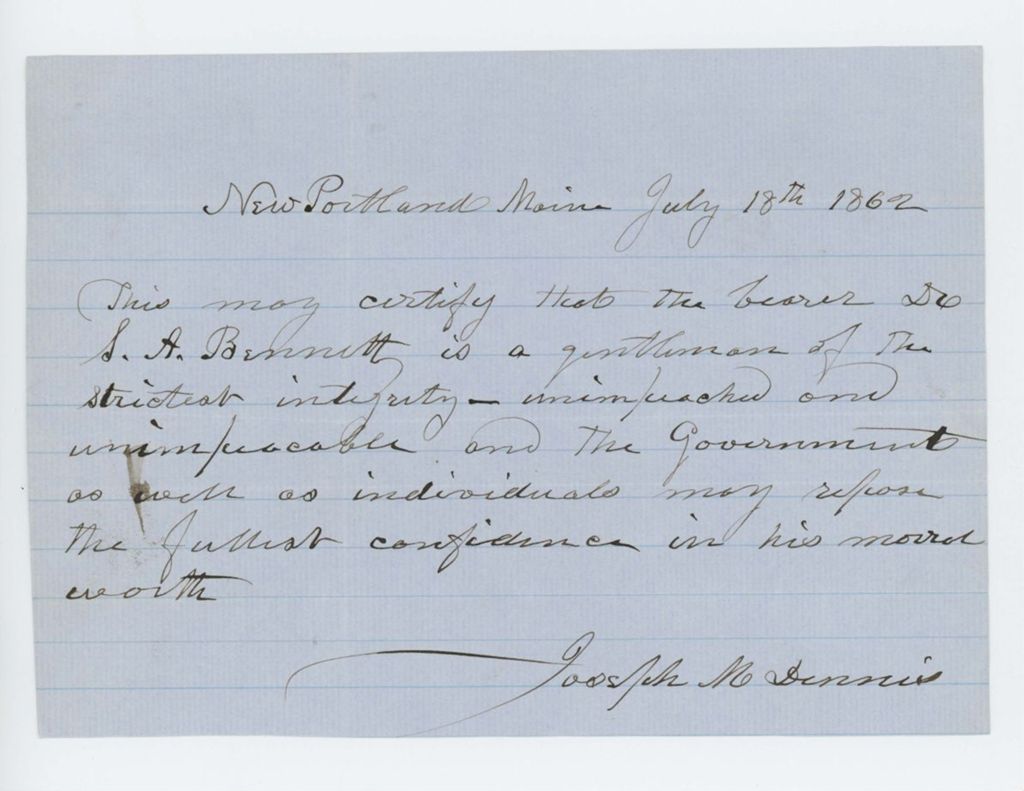 New Portland Maine July 18th 1862
This may certify that the bearer Dr
S. A. Bennett is a gentleman of the
strictest integrity - unimpeached and
unimpeacable and the Government
as well as individuals may repose
the fullest confidence in his moral
worth
Joseph M Dennis